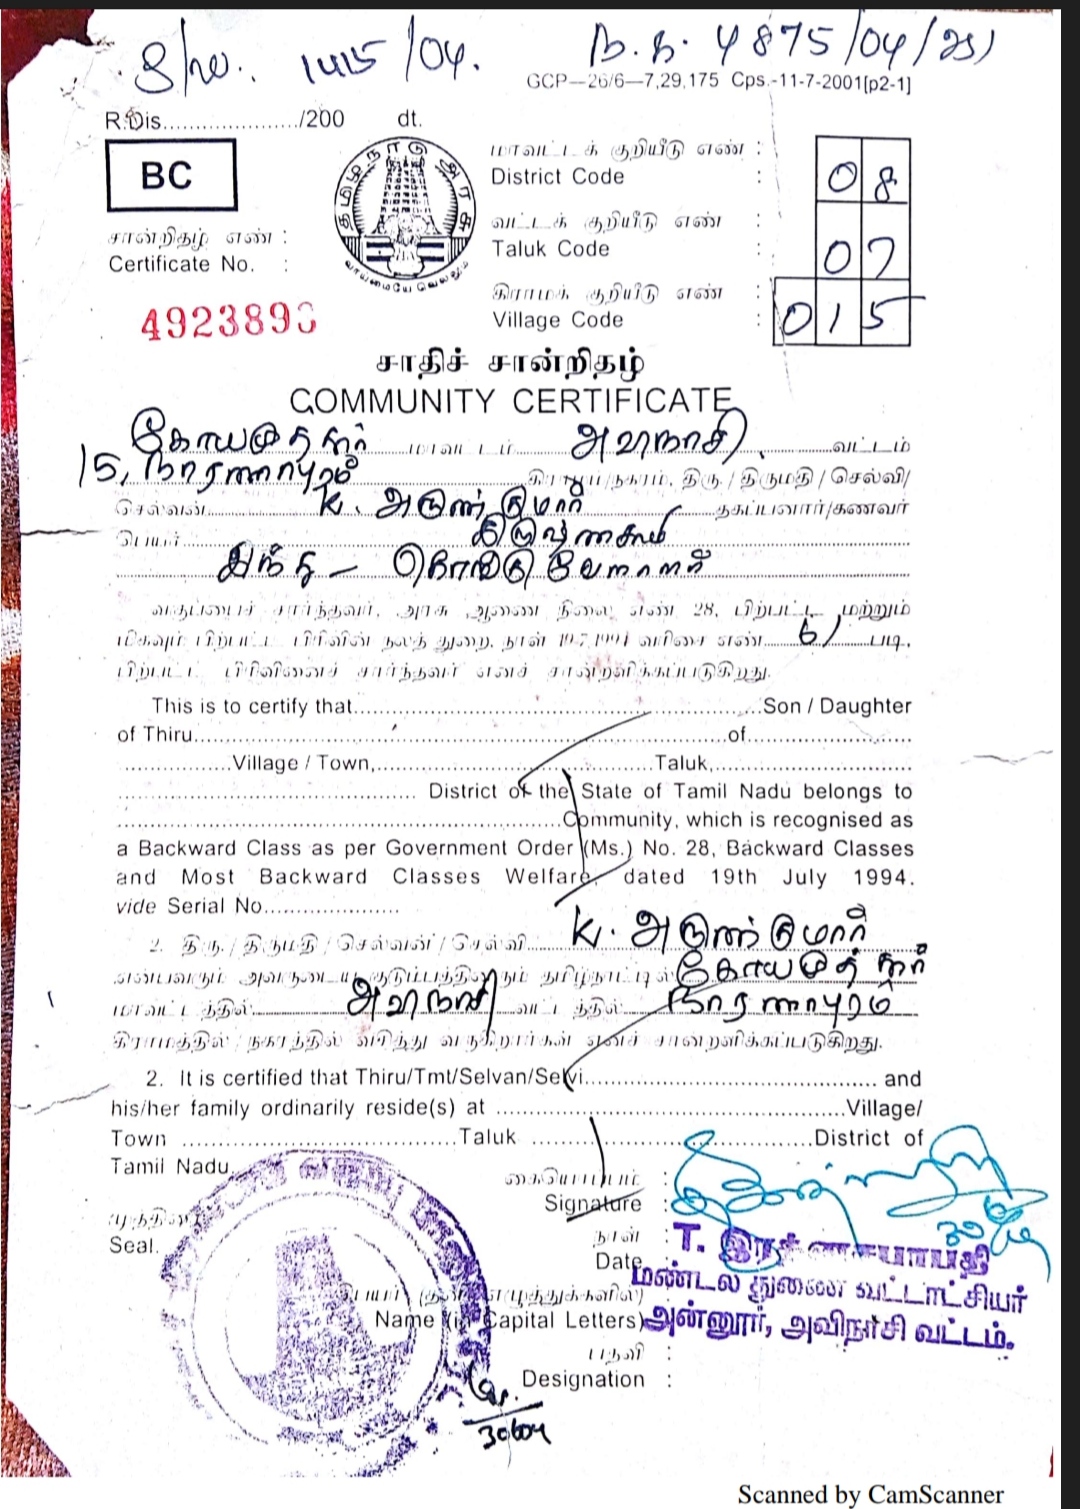 S/no. 1415/04. ந.க. 4875/04/
GCP—26/6—7,29,175 Cps.-11-7-2001[p2-1]
R.Dis...................../200 dt.
BC
தமிழ்நாடு அரசு
வாய்மையே வெல்லும்
மாவட்டக் குறியீடு எண் :
District Code : 08
வட்டக் குறியீடு எண் :
Taluk Code : 07
கிராமக் குறியீடு எண் :
Village Code : 015
சான்றிதழ் எண் :
Certificate No. :
4923893
சாதிச் சான்றிதழ்
COMMUNITY CERTIFICATE
கோயமுத்தூர் மாவட்டம் அவிநாசி வட்டம்
15, நாரணாபுரம் கிராமம்/நகரம், திரு/திருமதி/செல்வி/
செல்வன் K. அருண்குமார் தகப்பனார்/கணவர்
பெயர் கிருஷ்ணசாமி
இந்து – கொங்கு வேளாளர்
வகுப்பைச் சார்ந்தவர், அரசு ஆணை நிலை எண் 28, பிற்பட்ட மற்றும்
மிகவும் பிற்பட்ட பிரிவினர் நலத் துறை, நாள் 19.7.1994 வரிசை எண் 61 படி,
பிற்பட்ட பிரிவினைச் சார்ந்தவர் எனச் சான்றளிக்கப்படுகிறது.
This is to certify that...........................................Son / Daughter
of Thiru...........................................of......................
................Village / Town,..............................Taluk,......................
.................................... District of the State of Tamil Nadu belongs to
......................................................Community, which is recognised as
a Backward Class as per Government Order (Ms.) No. 28, Backward Classes
and Most Backward Classes Welfare, dated 19th July 1994.
vide Serial No....................
2. திரு./திருமதி/செல்வன்/செல்வி K. அருண்குமார்
என்பவரும் அவருடைய குடும்பத்தினரும் தமிழ்நாட்டில் கோயமுத்தூர்
மாவட்டத்தில் அவிநாசி வட்டத்தில் நாரணாபுரம்
கிராமத்தில்/நகரத்தில் வசித்து வருகிறார்கள் எனச் சான்றளிக்கப்படுகிறது.
2. It is certified that Thiru/Tmt/Selvan/Selvi................................ and
his/her family ordinarily reside(s) at ........................................Village/
Town ................................Taluk ................................District of
Tamil Nadu.
கையொப்பம் :
Signature :
முத்திரை
Seal.
நாள் :
Date
T. இரத்தினசபாபதி
மண்டல துணை வட்டாட்சியர்
பெயர் (தனி எழுத்துக்களில்)
Name (in Capital Letters) அன்னூர், அவிநாசி வட்டம்.
பதவி :
Designation :
30/6/04
Scanned by CamScanner